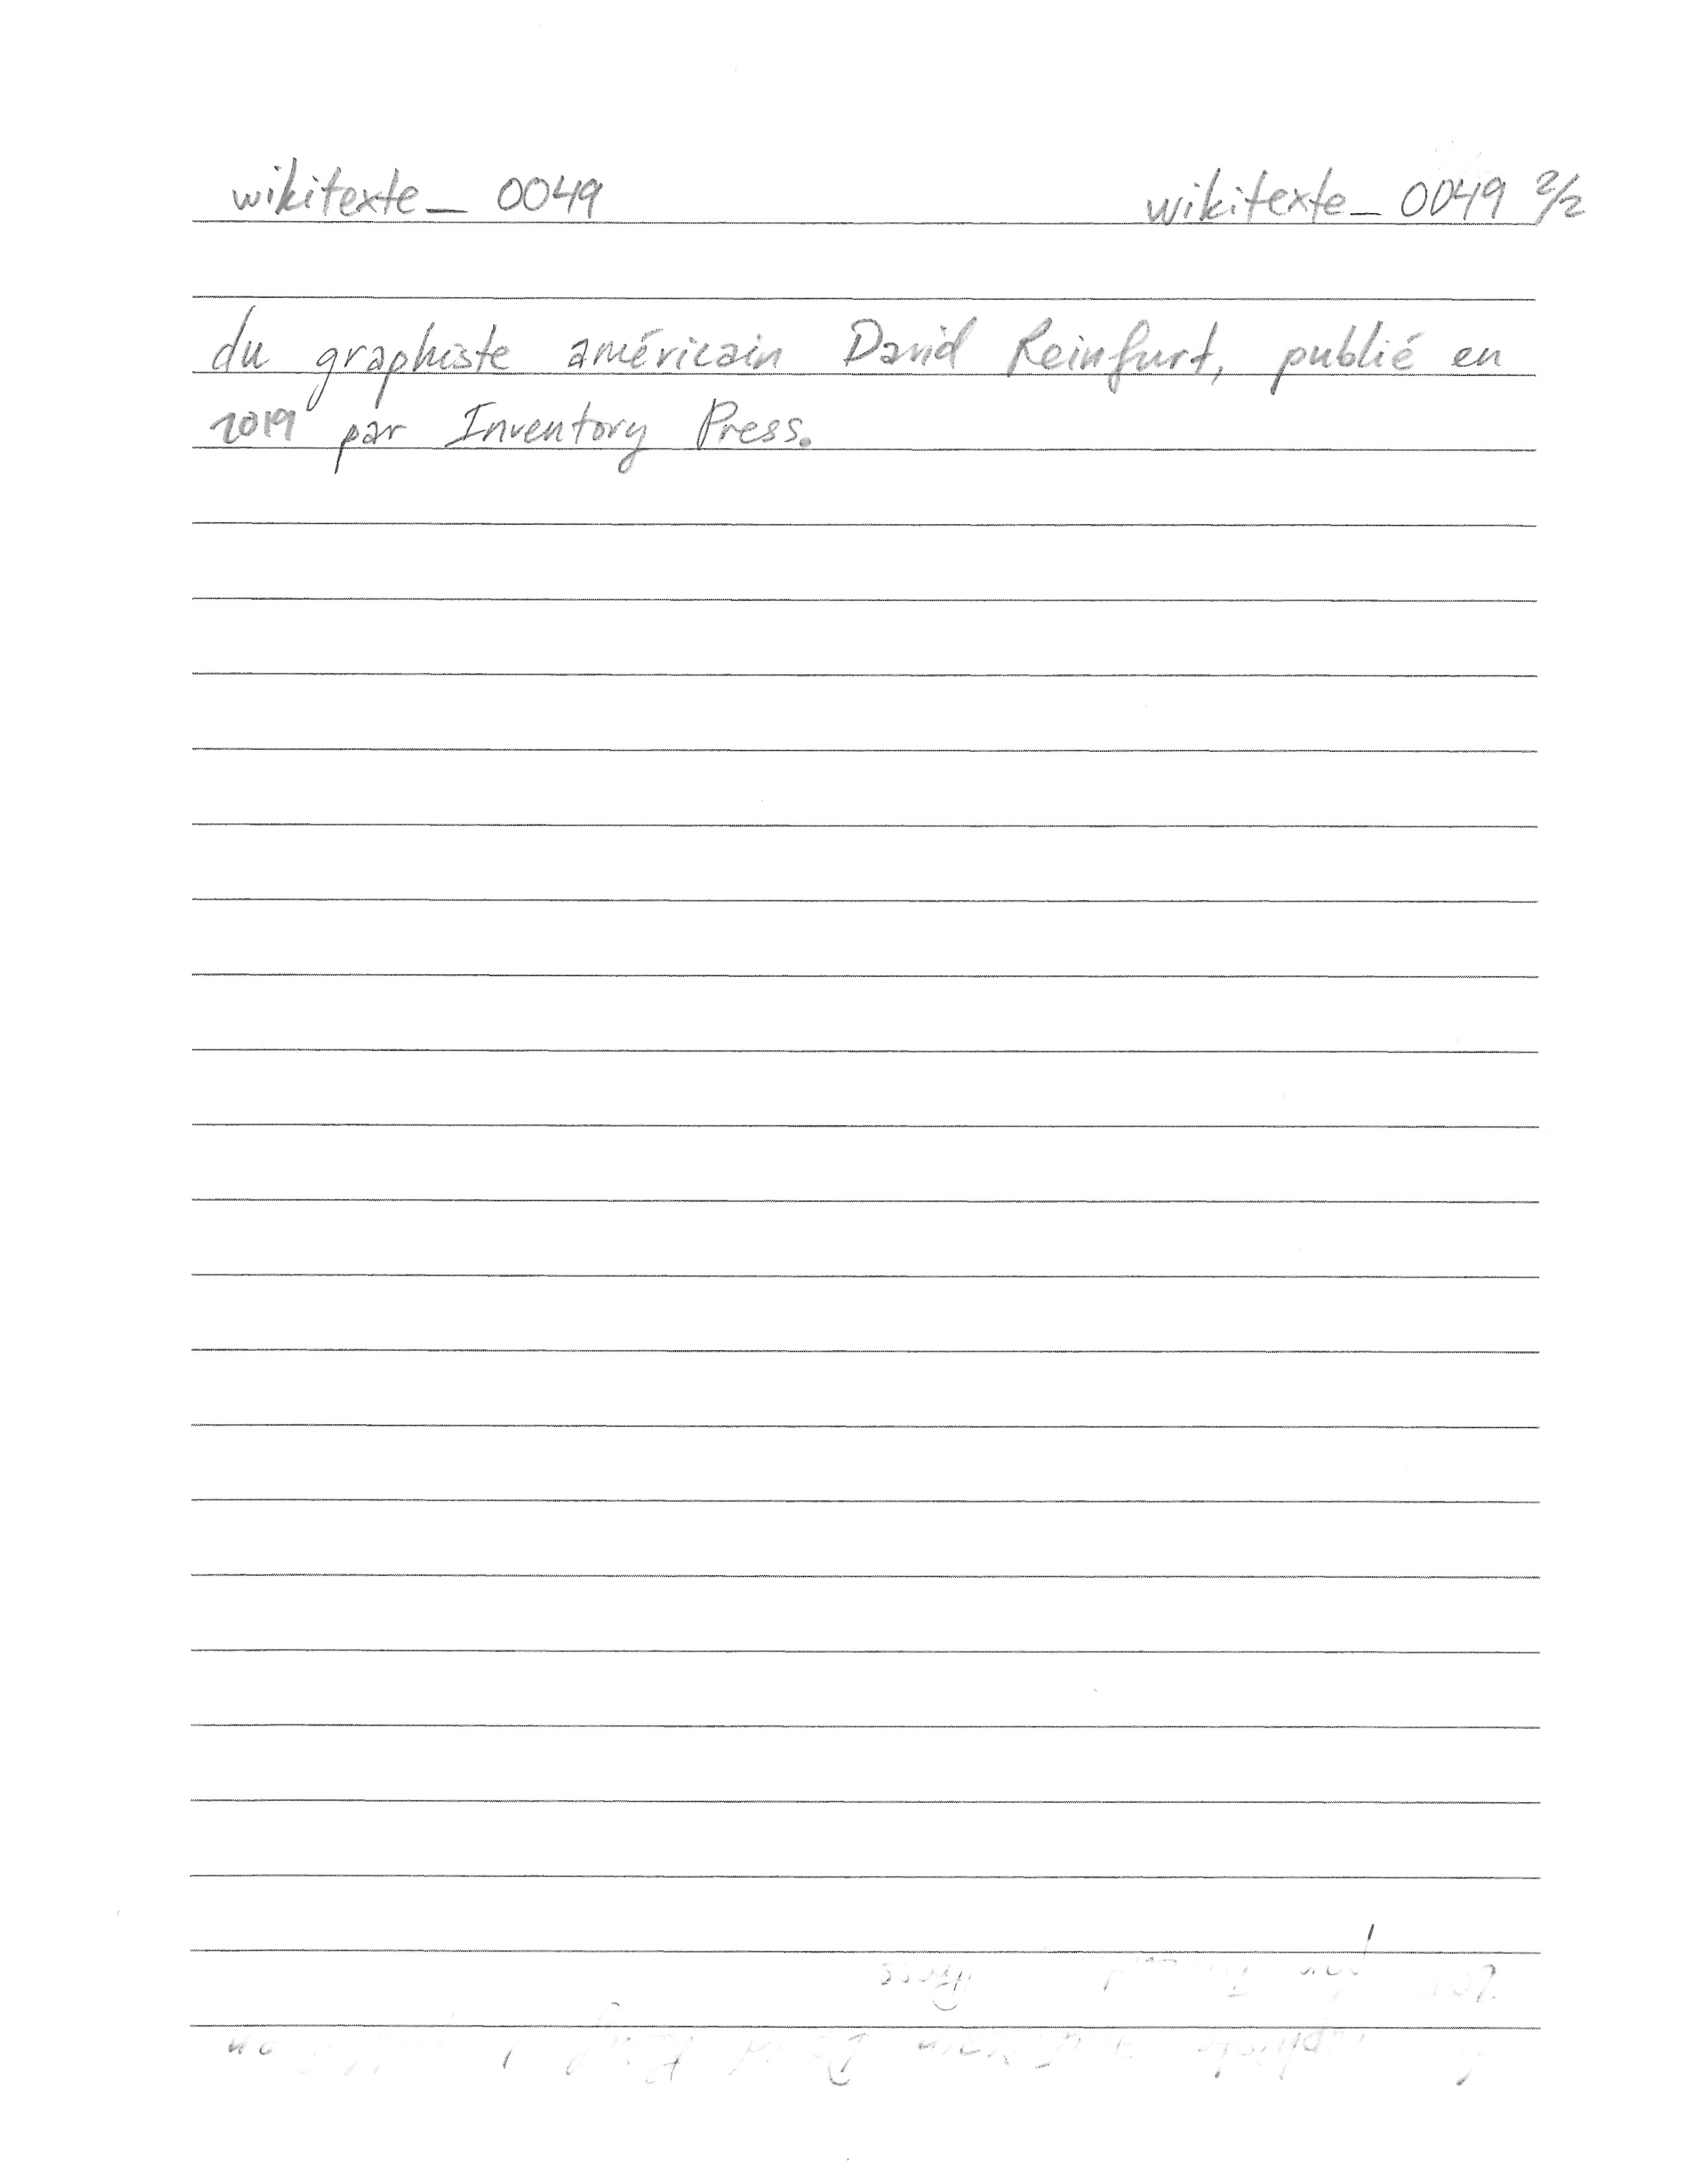 wikitexte_ 0049 wikitexte_ 0049 2/2
du graphiste américain David Reinfurt, publié en
2019 par Inventory Press.